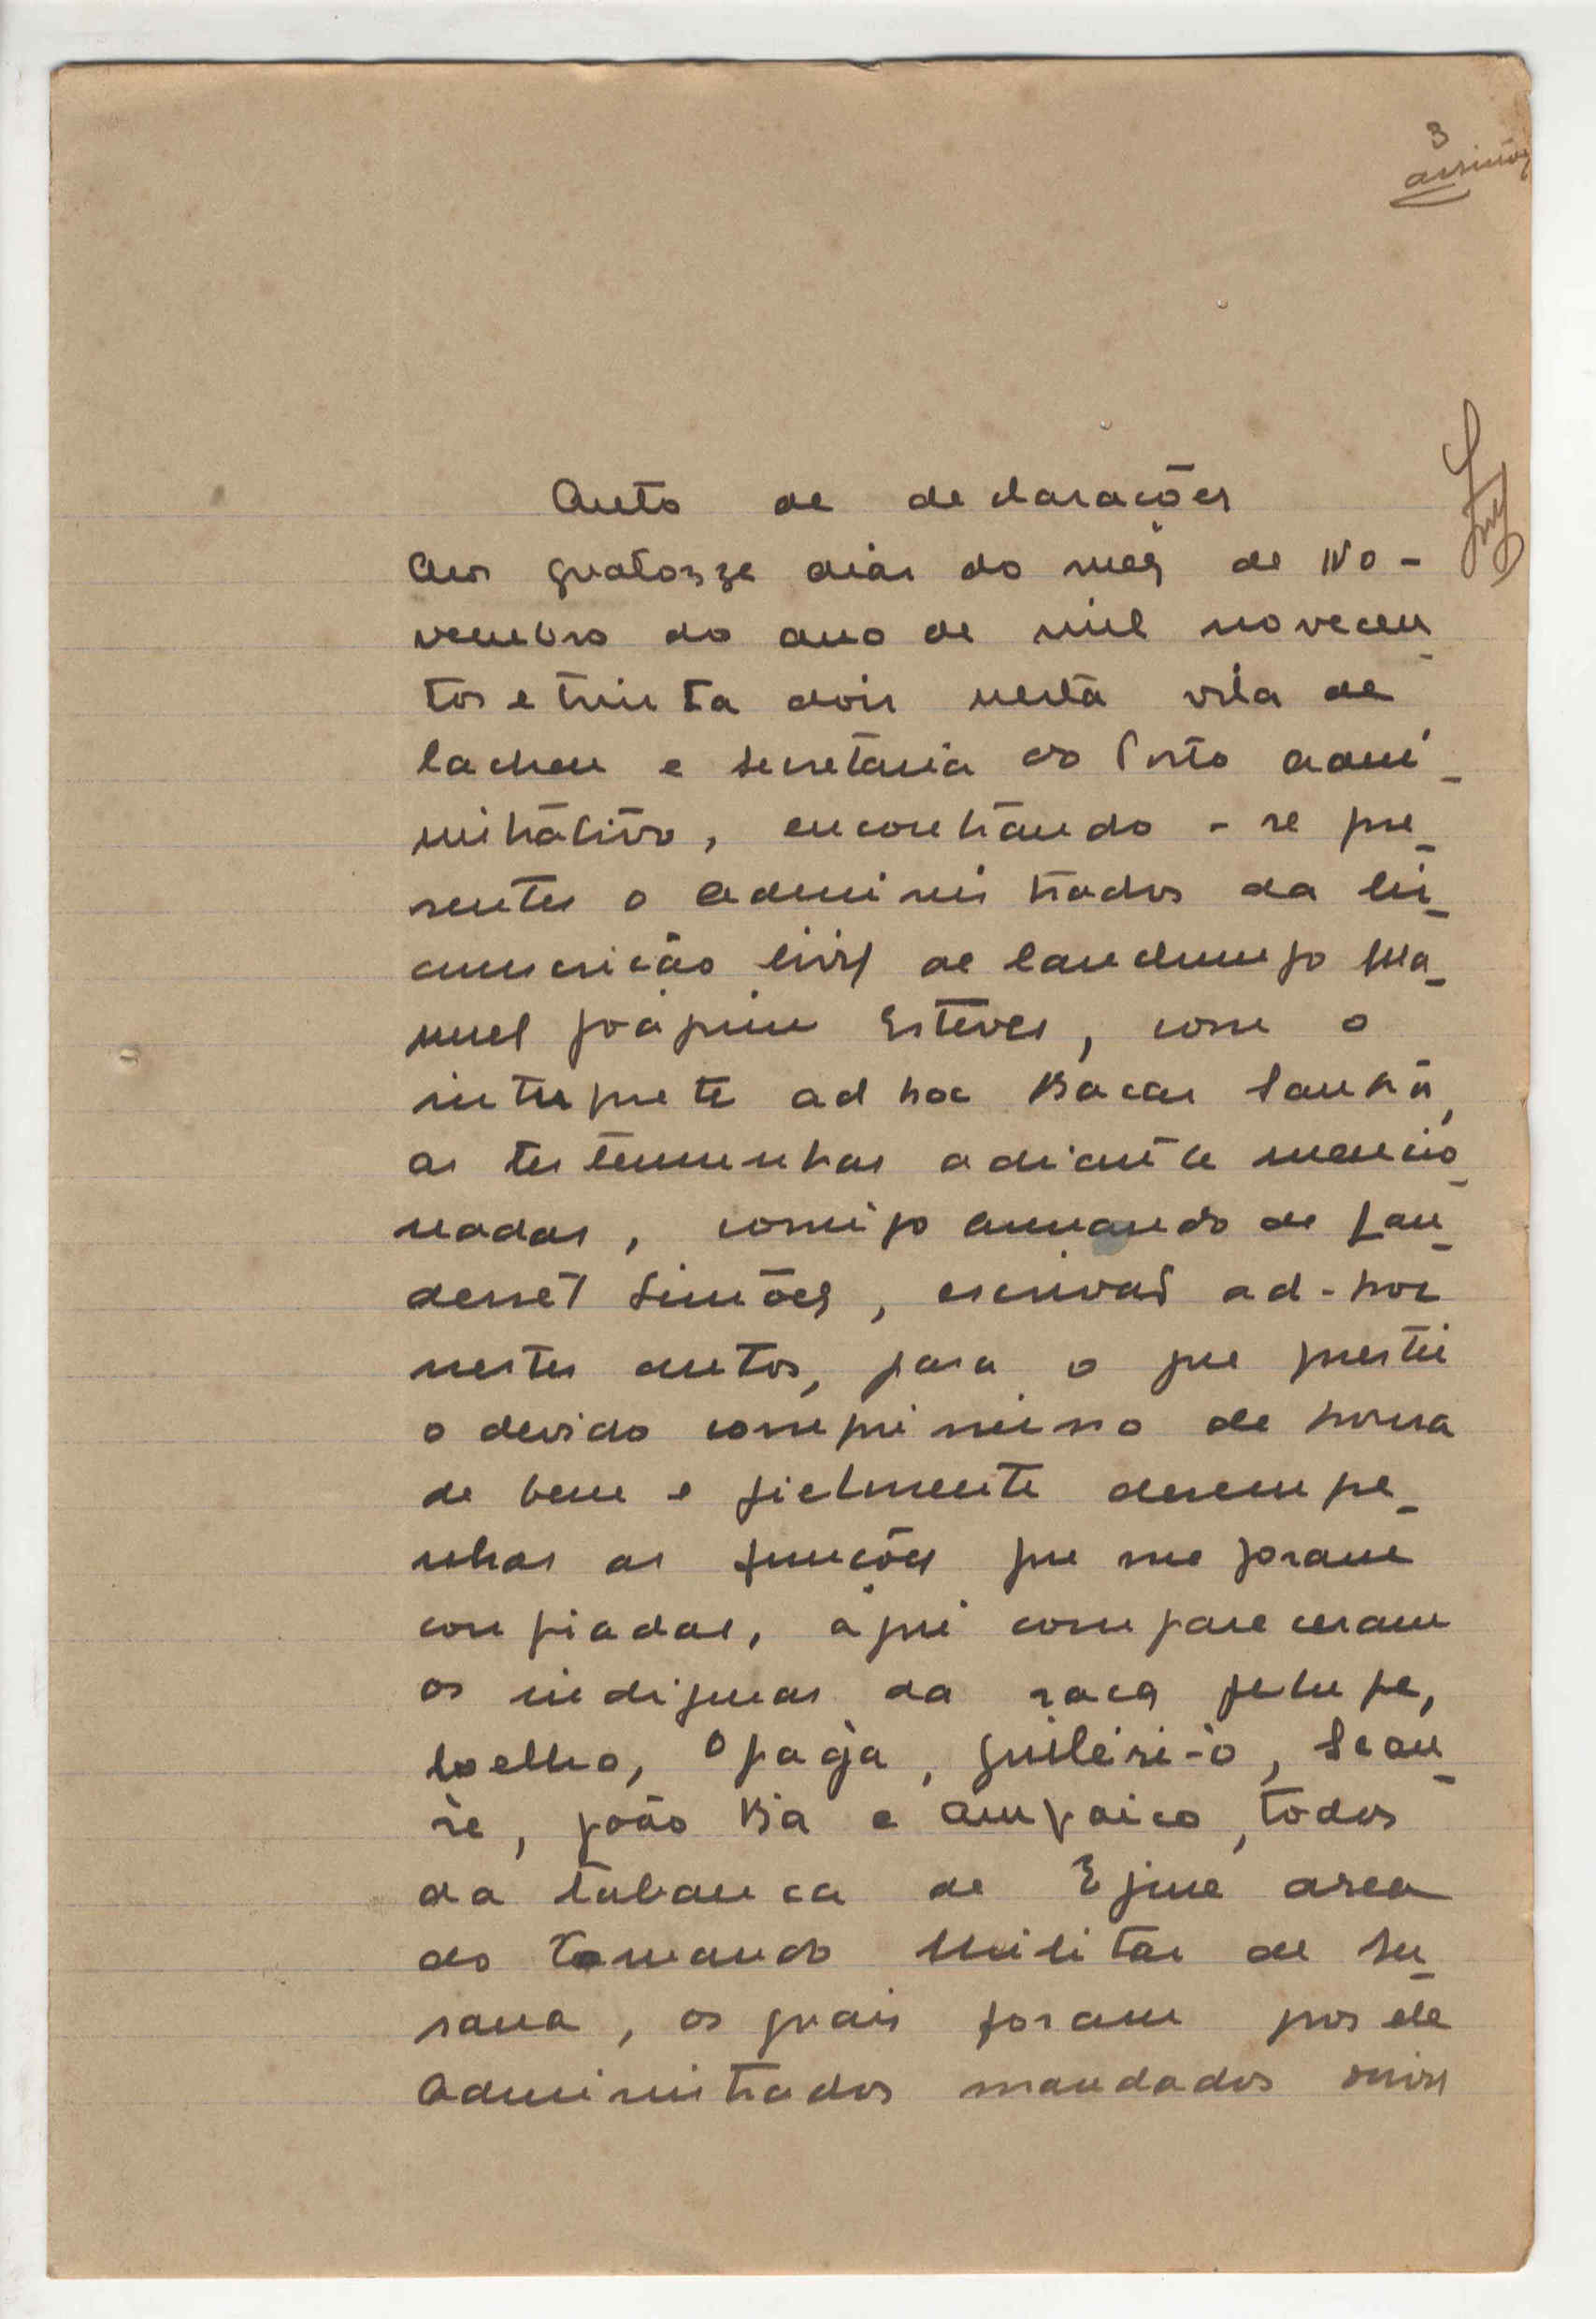 3
Auto de declarações
Aos quatorze dias do mês de No-
vembro do ano de mil novecen-
tos e trinta dois nesta vila de
Cacheu e secretaria do Posto admi-
nistrativo, encontrando-se pre-
sentes o Administrador da Cir-
cunscrição Civil de Canchungo Ma-
nuel Joaquim Esteves, com o
interprete ad hoc Bacar Sanhá,
as testemunhas adiante mencio-
nadas, comigo Armando de Lan-
derset Simões, escrivão ad-hoc
nestes autos, para o que prestei
o devido compromisso de honra
de bem e fielmente desempe-
nhar as funções que me foram
confiadas, aqui compareceram
os indigenas da raça felupe,
Coelho, Opaja, Guiléri-ô,
João Bá e Ampaico, todos
da tabanca de Ejine area
do Comando Militar de Su-
sana, os quais foram por ele
Administrador mandados ouvir